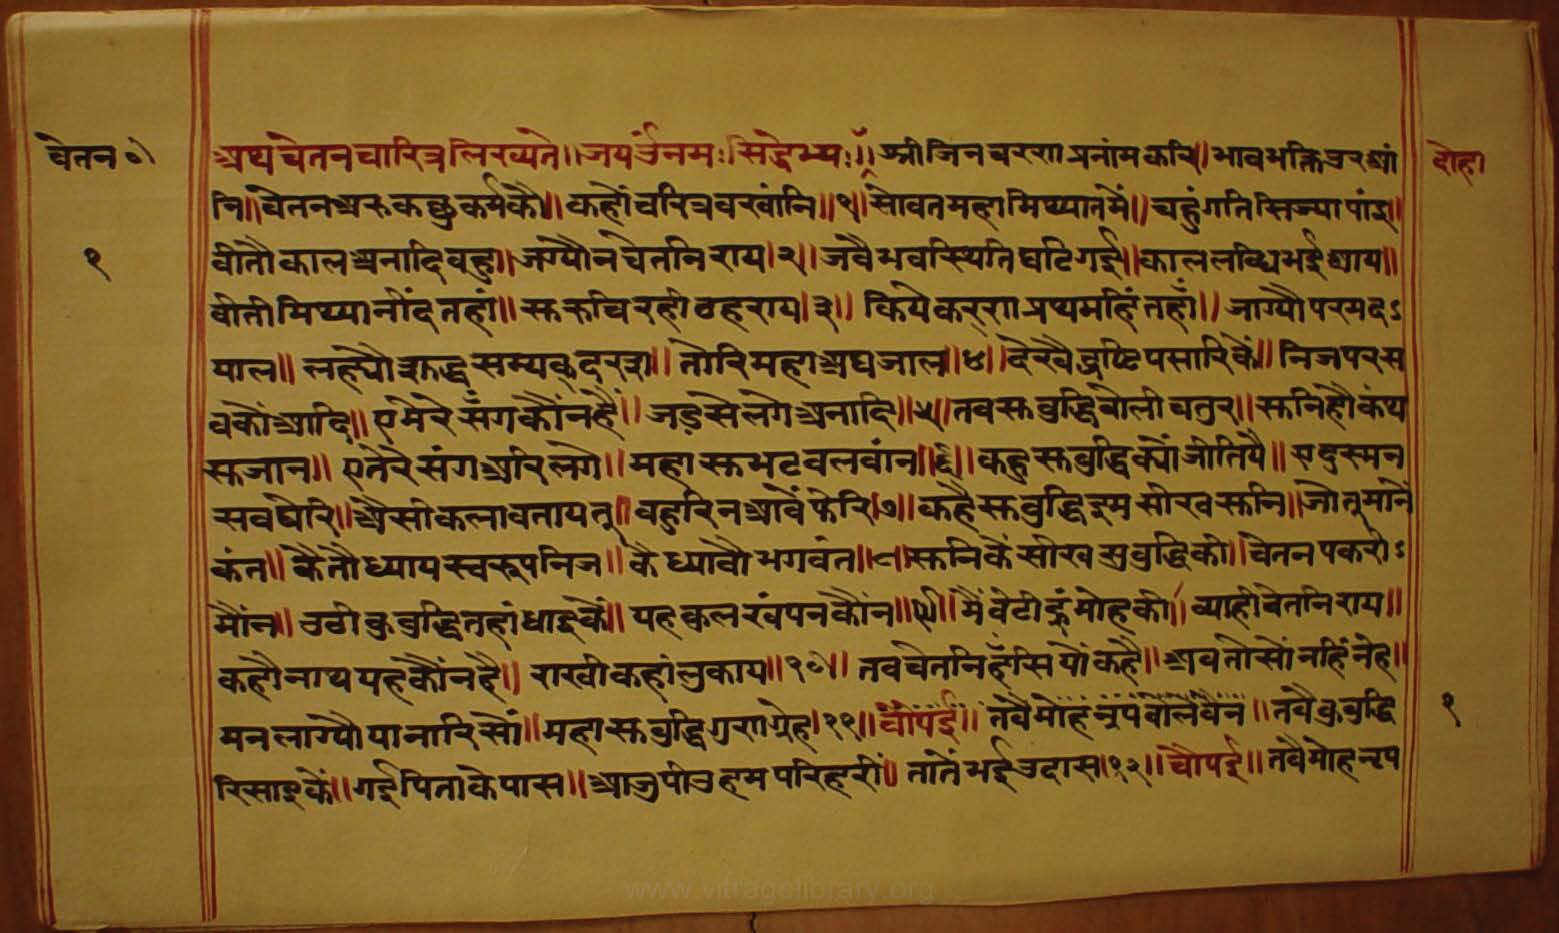 चेतन०। अथ चेतन चारित्र लिख्यते॥ जय ॐ नमः सिद्धेभ्यः॥ श्री जिन चरण प्रनांम करि॥ भाव भक्ति उर आं दोहा
नि॥ चेतन अरु कछु कर्मकौ॥ कहों चरित्र वखांनि॥१॥ सोवत महा मिथ्यात में॥ चहुं गति सिज्या पांइ॥
१ वीतौ काल अनादि वहु॥ जग्यौ न चेतनि राय।२॥ जवै भवस्थिति घटि गई॥ काल लब्धि भई आय॥
वीती मिथ्या नींद तहां॥ सुरुचि रही ठहराय।३॥ किये करण प्रथमहिं तहाँ॥ जाग्यौ परम दऽ
याल॥ लह्यौ शुद्ध सम्यक् दरश॥ तोरि महा अघ जाल॥४॥ देखै द्रष्टि पसारिकें॥ निज पर स
वकों आदि॥ ए मेरे सँग कौंन है॥ जड़ से लगे अनादि॥५॥ तव सुवुद्धि वोली चतुर॥ सुनि हौ कंथ
सुजान॥ ए तेरे संग अरि लगे॥ महा सुभट वलवांन॥६॥ कहु सुवुद्धि क्यों जीतियै॥ ए दुस्मन
सव घेरि॥ अैसी कला वताय तू॥ वहुरि न आवें फेरि।७॥ कहै सुवुद्धि इम सीख सुनि॥ जो तू मानें
कंत॥ कै तौ ध्याय स्वरूप निज॥ कै ध्यावौ भगवंत॥८॥ सुनिकें सीख सुवुद्धि की॥ चेतन पकरीऽ
मौंन॥ उठी कुवुद्धि तहां धाइकें॥ यह कुल खंपन कौंन॥९॥ मैं वेटी हूं मोह की॥ व्याही चेतनि राय॥
कहौ नाथ यह कौंन है॥ राखी कहां लुकाय॥१०॥ तव चेतनि हँसि यों कहै॥ अव तोसों नहिं नेह॥
मन लाग्यौ या नारि सों॥ महा सुवुद्धि गुण ग्रेह।११॥ चौपई॥ तवै मोह न्रप वोलै वैन॥ तवै कुवुद्धि १
रिसाइकें॥ गई पिता के पास॥ आजु पीउ हम परिहरीं॥ तातें भई उदास।१२॥ चौपई॥ तवै मोह नृप
www.vitragelibrary.org